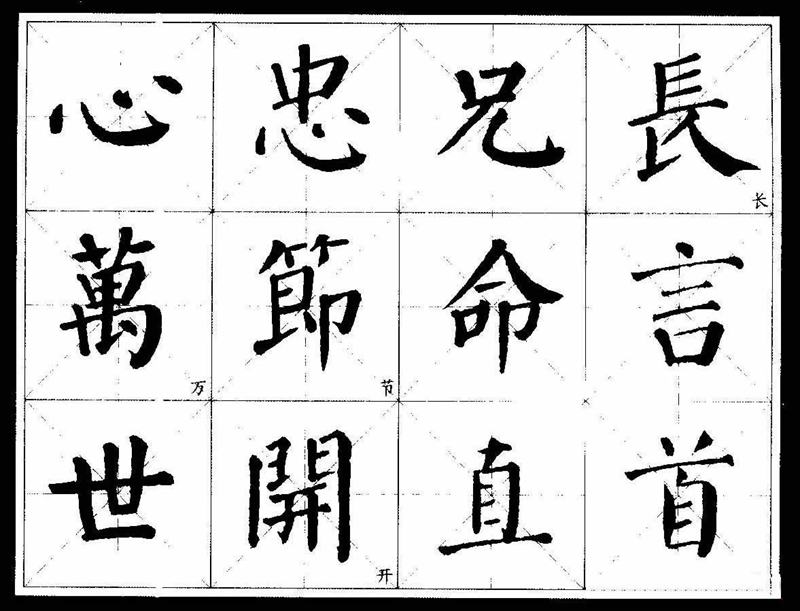 長长言首
兄命直
忠節节開开
心萬万世